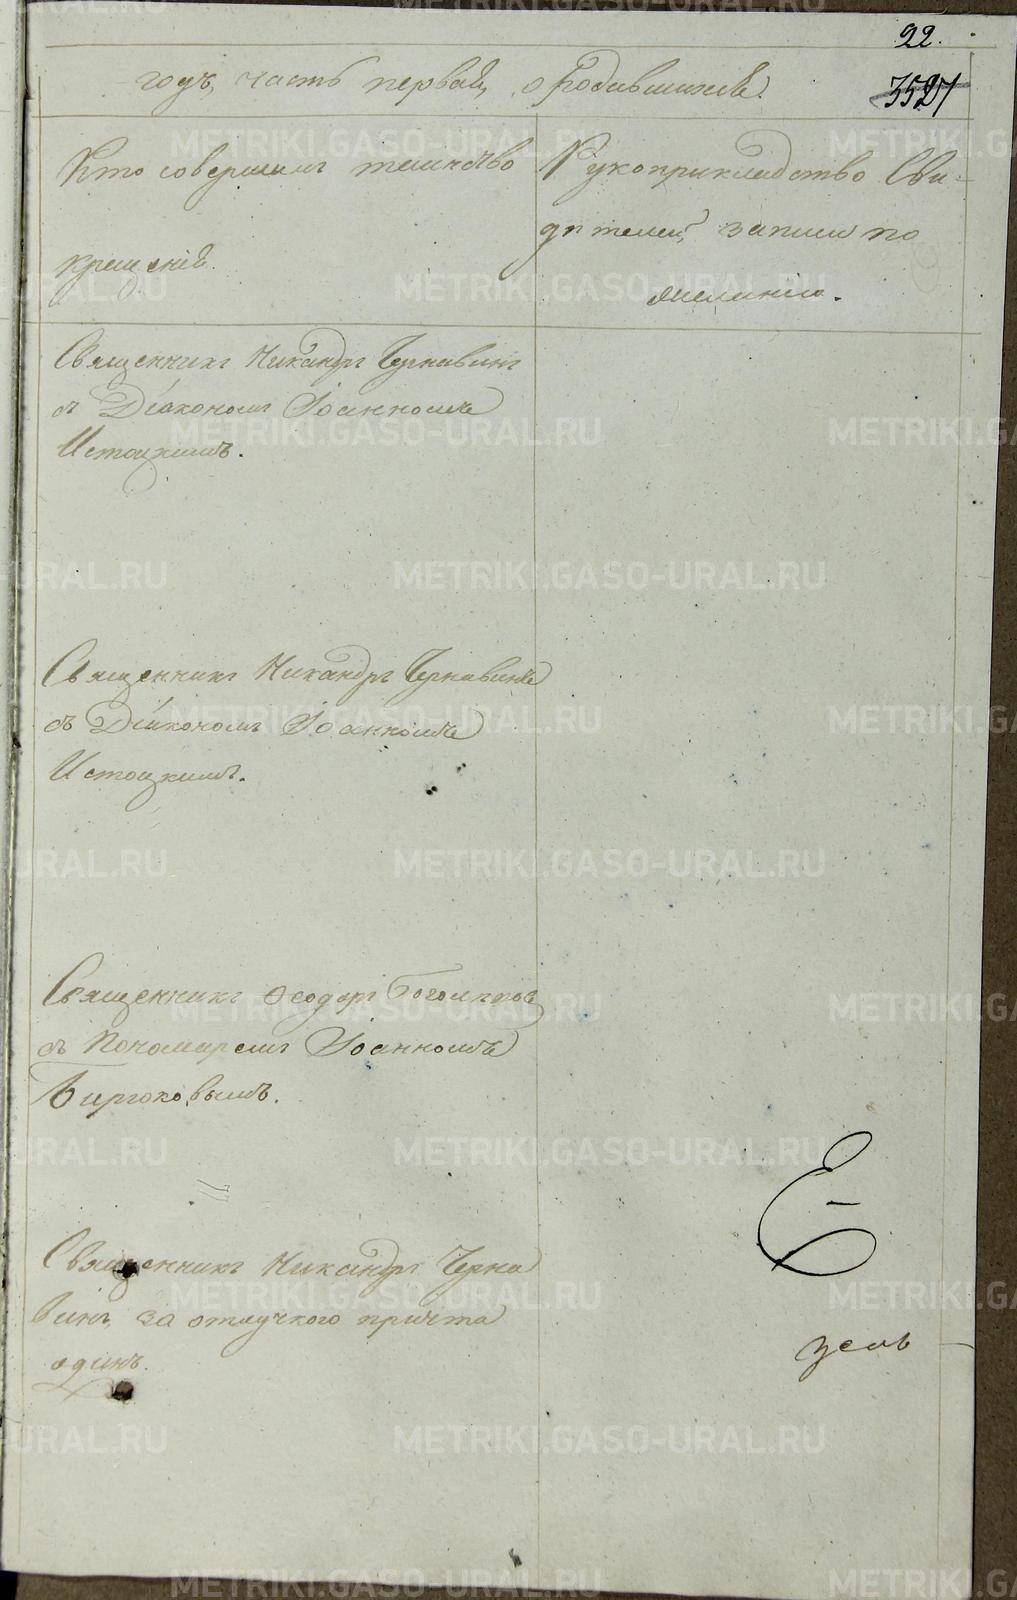 22.
годъ, часть первая, о Родившихся.
3521
Кто совершалъ таинство
крещенія.
Рукоприкладство Сви-
дѣтелей записи по
желанію.
Священникъ Никандръ Чернавинъ
съ Діакономъ Іоанномъ
Истоцкимъ.
Священникъ Никандръ Чернавинъ
съ Діакономъ Іоанномъ
Истоцкимъ.
Священникъ Ѳеодоръ Боголѣповъ
съ Пономаремъ Іоанномъ
Бирюковымъ.
Священникъ Никандръ Черна
винъ, за отлучкою причта
одинъ.
METRIKI.GASO-URAL.RU